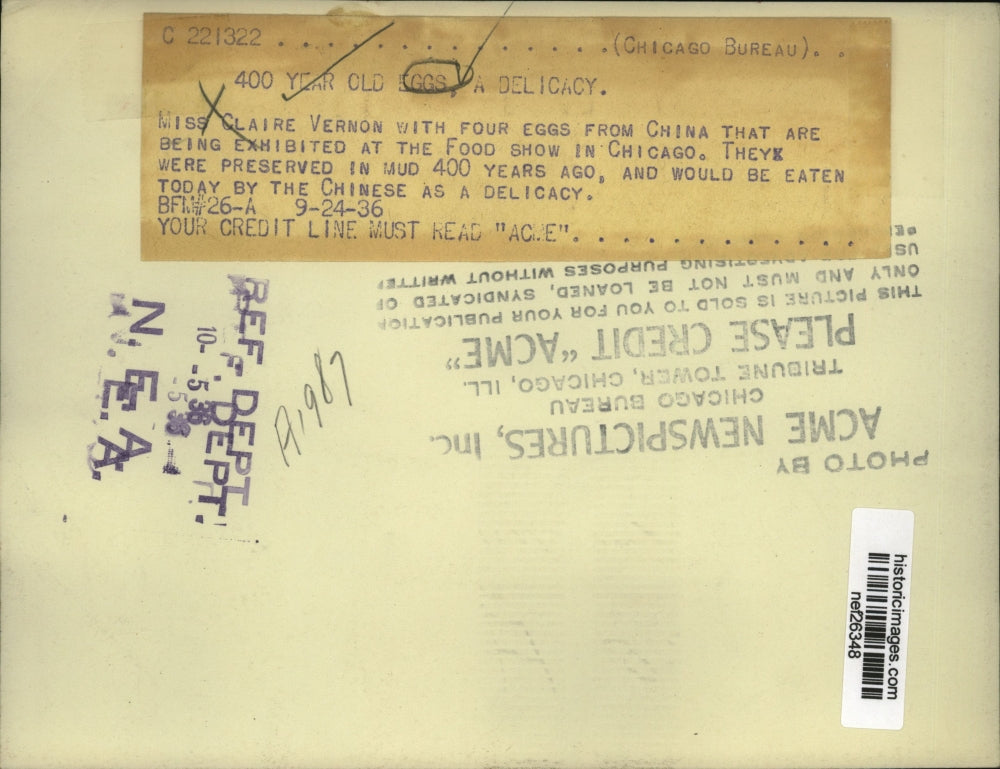 C 221322 . . . . . . . . . . . . . . .(CHICAGO BUREAU). .
400 YEAR OLD EGGS, A DELICACY.
MISS CLAIRE VERNON WITH FOUR EGGS FROM CHINA THAT ARE
BEING EXHIBITED AT THE FOOD SHOW IN CHICAGO. THEYX
WERE PRESERVED IN MUD 400 YEARS AGO, AND WOULD BE EATEN
TODAY BY THE CHINESE AS A DELICACY.
BFM#26-A 9-24-36
YOUR CREDIT LINE MUST READ "ACME". . . . . . . . . . . . .
PHOTO BY
ACME NEWSPICTURES, Inc.
CHICAGO BUREAU
TRIBUNE TOWER, CHICAGO, ILL.
PLEASE CREDIT "ACME"
THIS PICTURE IS SOLD TO YOU FOR YOUR PUBLICATION
ONLY AND MUST NOT BE LOANED, SYNDICATED OR
ADVERTISING PURPOSES WITHOUT WRITTEN
REF. DEPT.
N. E. A.
historicimages.com
nef26348